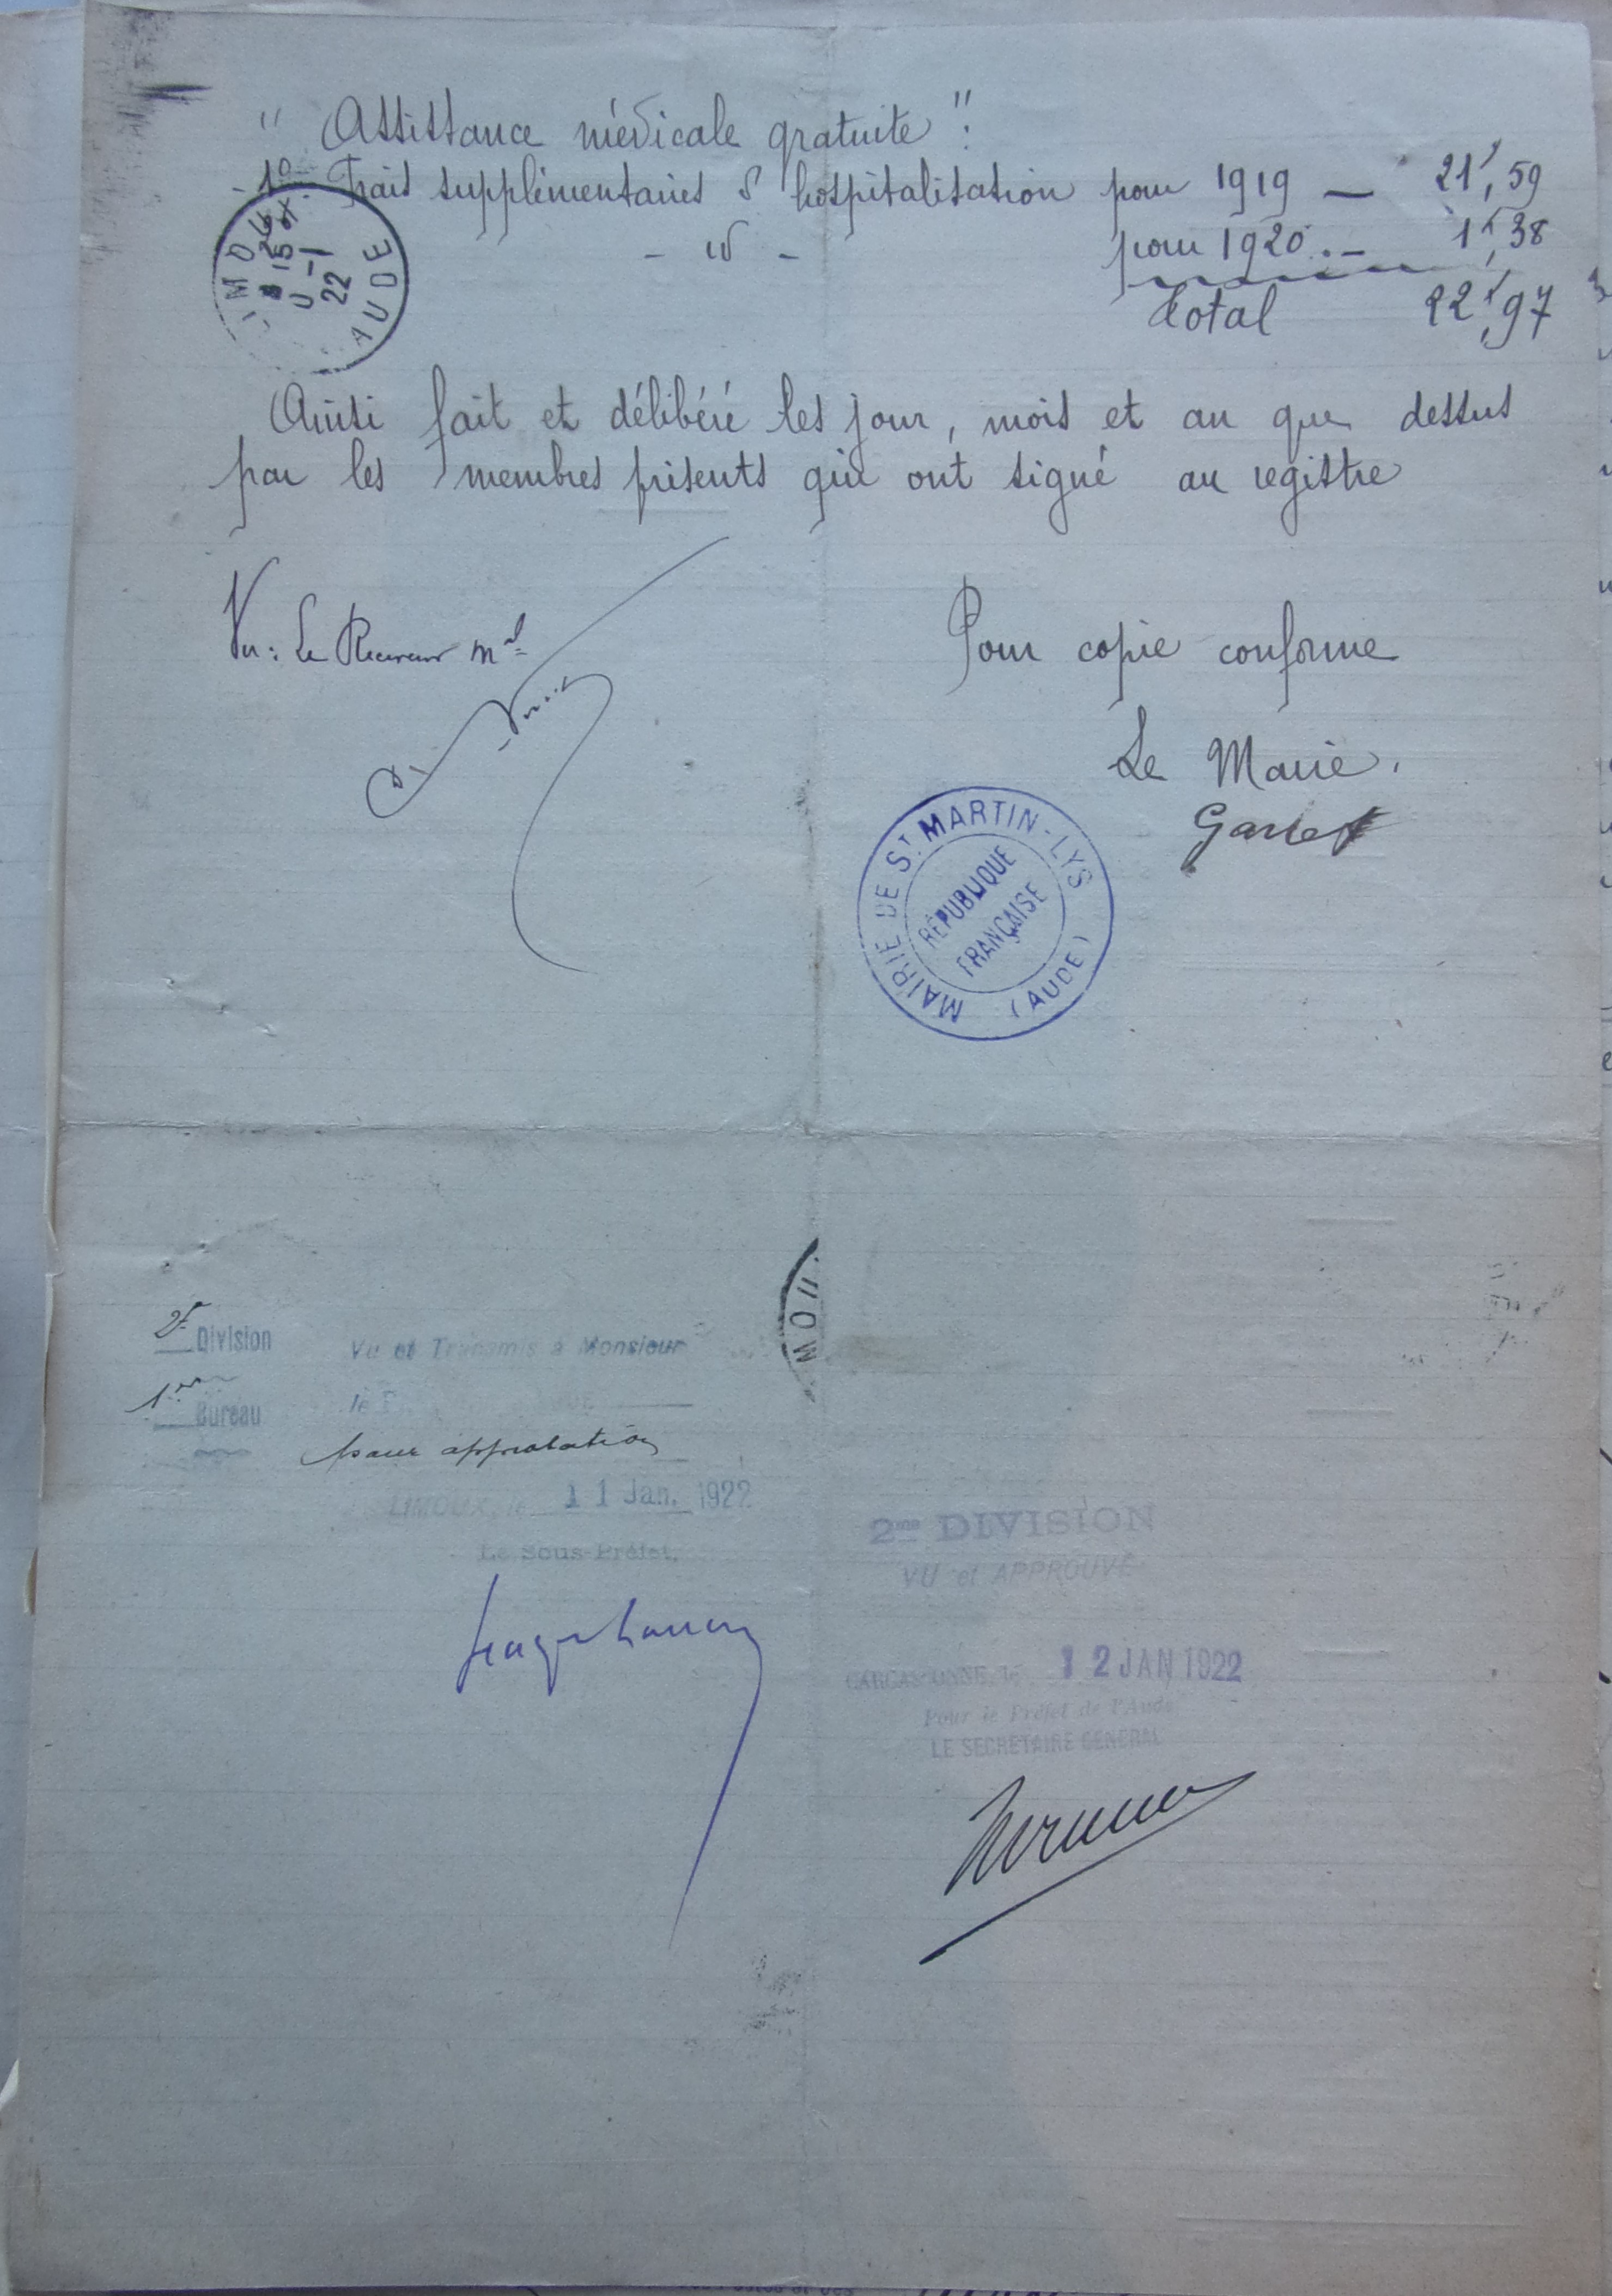 " Assistance médicale gratuite ".
- 1° Frais supplémentaires d'hospitalisation pour 1919 — 21f,59
- id - pour 1920 . — 1f,38
Total 22f,97
LIMOUX
8 15
-1
22
AUDE
Ainsi fait et délibéré les jour, mois et an que dessus
par les membres présents qui ont signé au registre
Vu : Le Receveur mal
Pour copie conforme
Le Maire,
MAIRIE DE ST MARTIN-LYS
(AUDE)
RÉPUBLIQUE
FRANÇAISE
2e Division
1er Bureau
Vu et Transmis à Monsieur
le
pour approbation
LIMOUX, le 11 Jan. 1922
Le Sous-Préfet,
2me DIVISION
VU et APPROUVÉ
CARCASSONNE, le 12 JAN 1922
Pour le Préfet de l'Aude
LE SECRÉTAIRE GÉNÉRAL